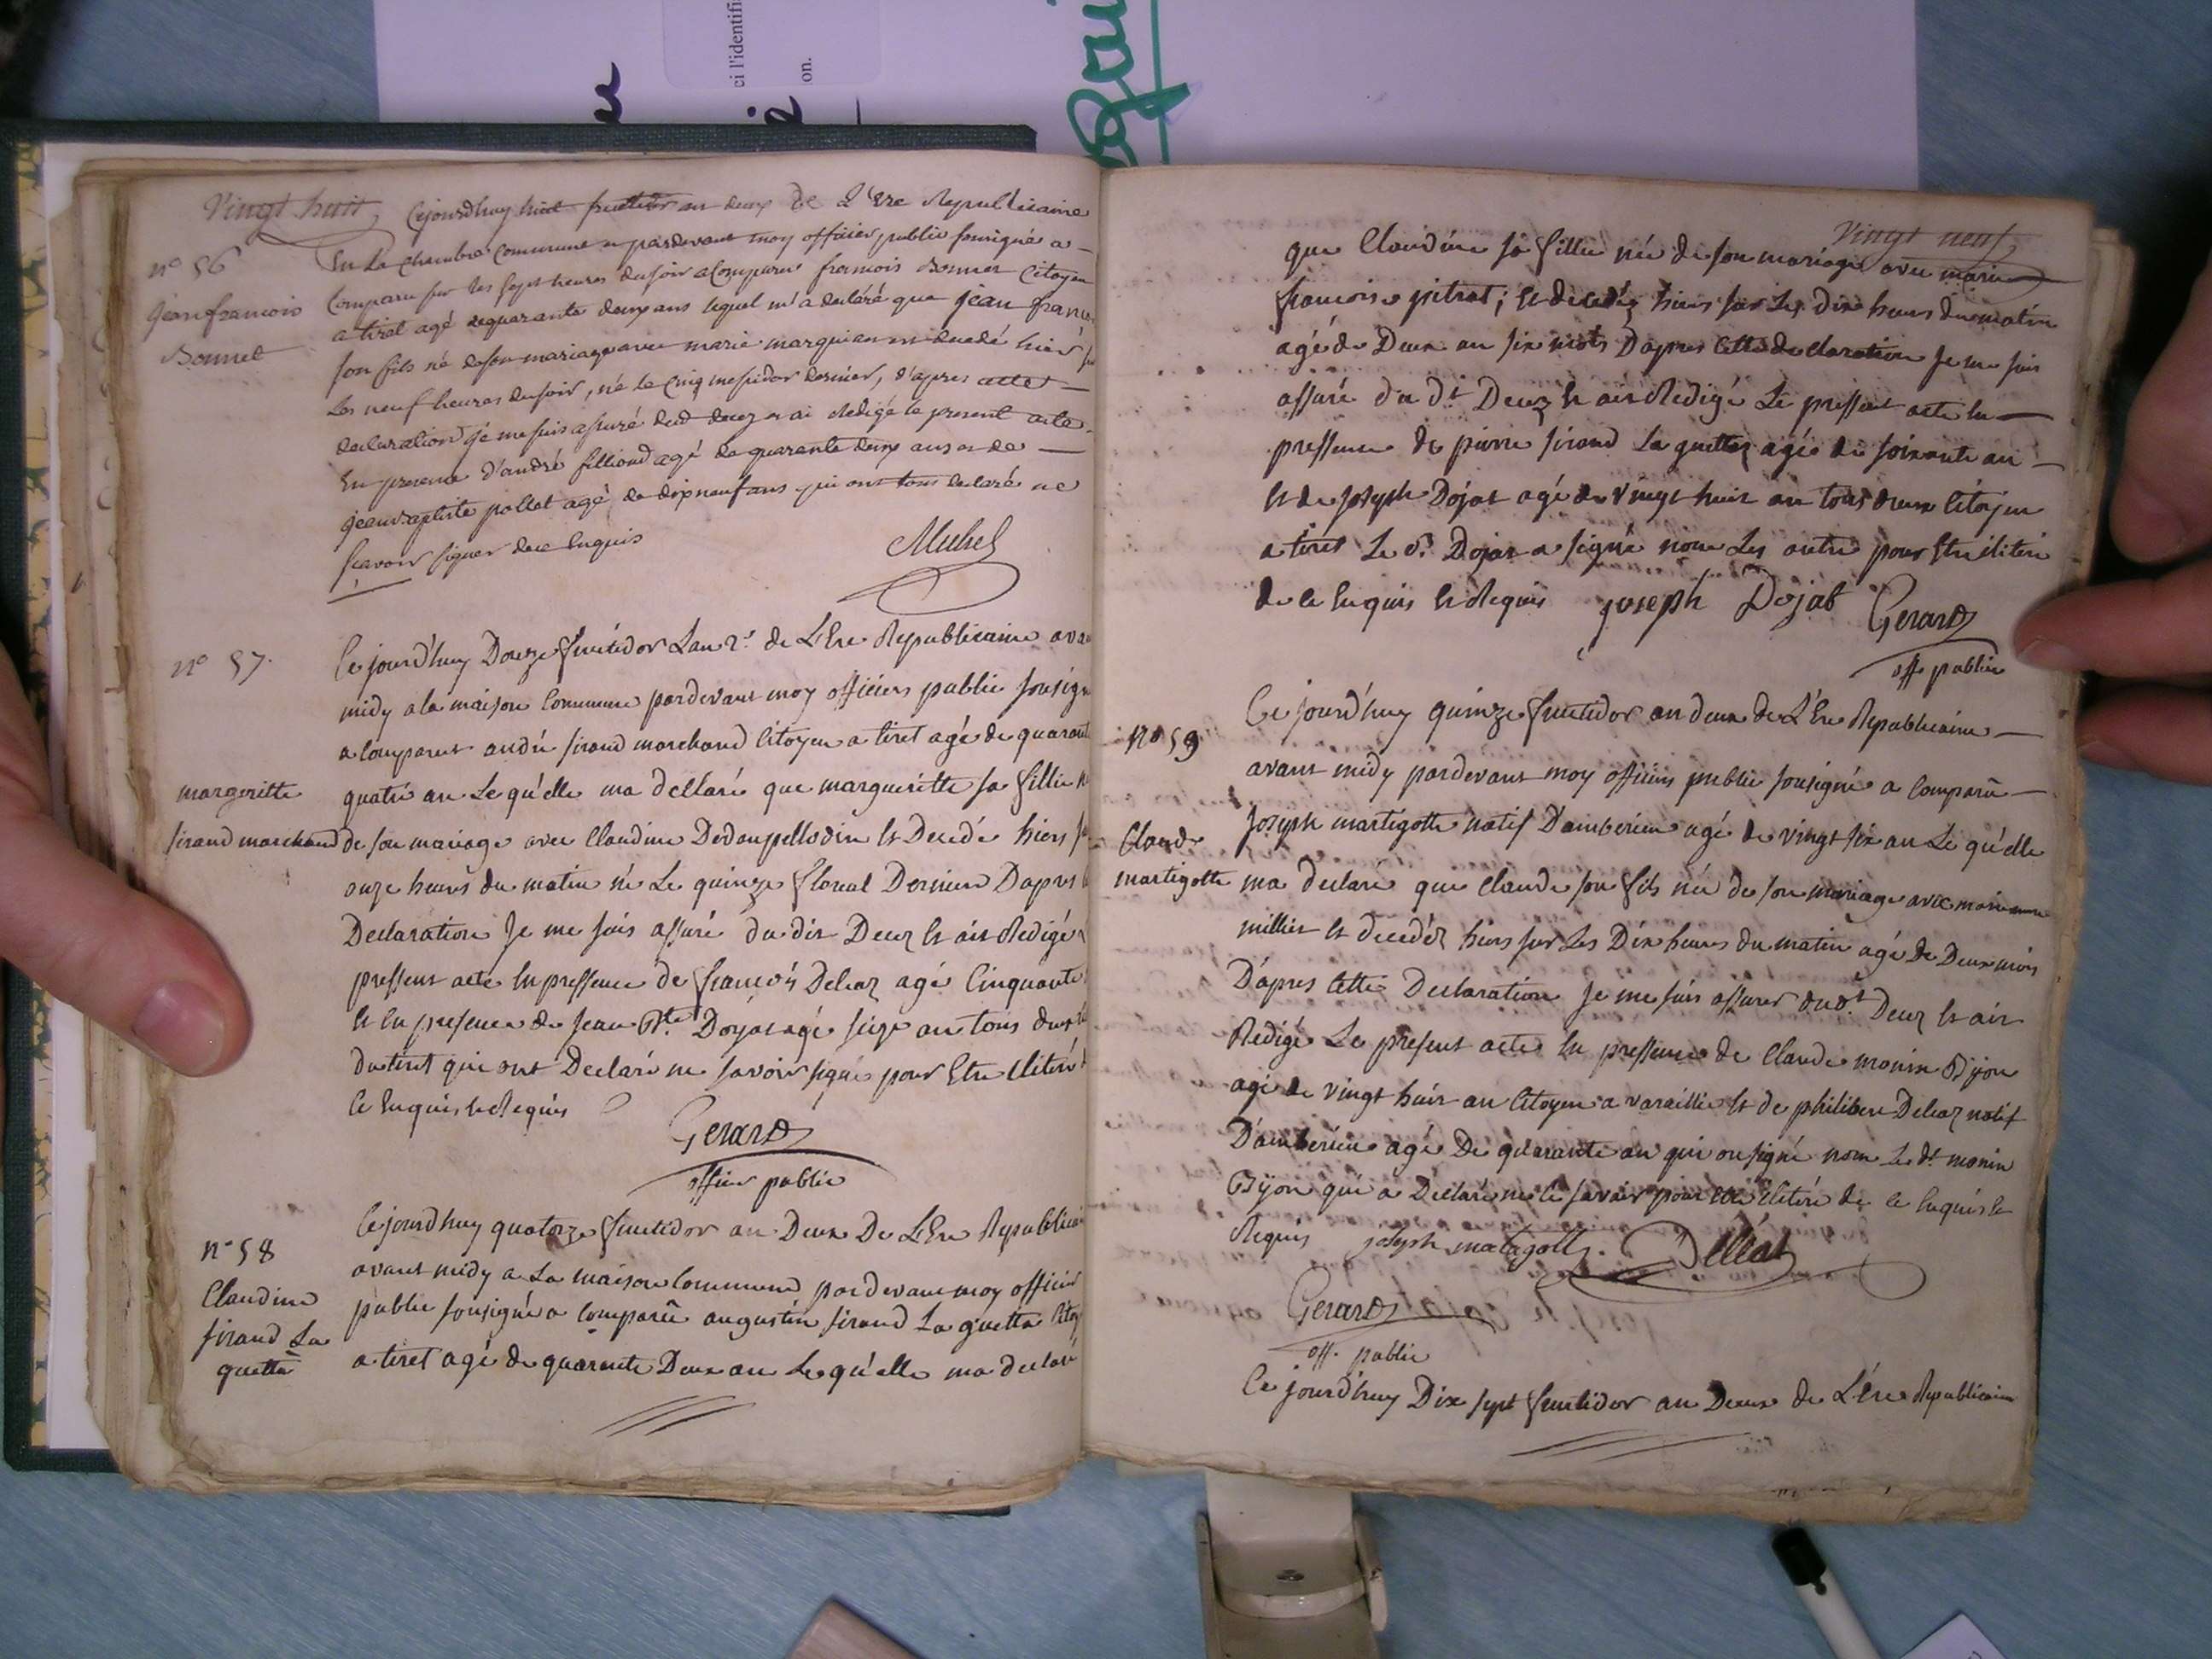 ci l'identifi
on.
Vingt huit
Cejourdhuy huit fructidor an deux de L'Ere Republicaine
n° 56
En La chambre commune et pardevant moy officier public sousigné a
Jean francois
Bonnet
Comparu sur les sept heures du soir a Comparu francois Bonnet Citoyen
a tiret agé de quarante deux ans lequel m'a declaré que jean franc
son fils né de son mariage avec marie marquian est decedé hier
Les neuf heures du soir, né le Cinq mesidor dernier, d'apres cette
declaration je me suis assuré dud decez et ai Redigé le present acte
En presence d'andré filliond agé de quarante deux ans et de
jean baptiste pollet agé de dixneuf ans qui ont tous declaré ne
scavoir signer de ce Enquis
Muhel
n° 57.
Ce jourd'huy Douze fructidor Lan 2d. de L'Ere Republicaine ava
midy a la maison Commune pardevant moy officiers public sousign
a Comparut andré sirand marchand Citoyen a tiret agé de quarant
margeritte
sirand marchand
quatre an Le qu'elle ma dellaré que marguerette sa fillie
de son mariage avec Claudine Dedompellodin Et Decedé hiers
onze heures du matin né Le quinze floreal Dernier Dapres
Declaration Je me suis assuré du dit Decez Et ait Redigé
pressent acte En pressence de francois Deleaz agé Cinquante
Et En presence de Jean Bte. Dojat agé seize an tous deux
du tiret qui ont Declaré ne savoir signé pour Etre Eliteré
Ce Enquis Et Requis
Gerard
officier public
n° 58
Claudine
sirand La
guetta
Ce jourd'huy quatorze fructidor an Deux De L'Ere Republicai
avant midy a La maison Commune pardevant moy officier
public sousigné a Comparu augustin sirand La guetta Citoy
a tiret agé de quarante Deux an Le qu'elle ma declaré
Vingt neuf
que Claudine sa fillie née de son mariage avec marie
francoise pitrat; Et decedéz hiers sur Les dix heurs du matin
agé de Deux an six mois D'apres Cette declaration Je me suis
assuré du dt Decez Et ait Redigé Le pressent acte En
pressence de pierre sirand La guetta agée de soixante an
Et de joseph Dojat agé de vingt huit an tous deux Citoyen
a tiret Le dt. Dojat a signé non Les autre pour Etre iliteré
de ce Enquis Et Requis
joseph Dojat
Gerard
off public
n° 59
Ce jourd'huy quinze fructidor an deux de L'Ere Republicaine
avant midy pardevant moy officier public sousigné a Comparu
Claude
martigotte
Joseph martigotte natif D'amberieu agé de vingt six an Le qu'elle
ma declaré que Claude son fils née de son mariage avec marianne
millier Et decedéz hiers sur Les Dix heures du matin agé de Deux mois
D'apres Cette Declaration Je me suis assurer du dt. Decez Et ait
Redigé Le present acte En pressence de Claude monin Bijon
agé de vingt huit an Citoyen a varaillie Et de philibert Deleaz natif
D'amberieu agé De quarante an qui on signé non Le dt monin
Bijon qui a Declaré ne le savoir pour etre iliteré de ce Enquis Et
Requis
joseph matagotte
Delléat
Gerard
off. public
Ce jourd'huy Dix sept fructidor an Deux de L'ére Republicaine